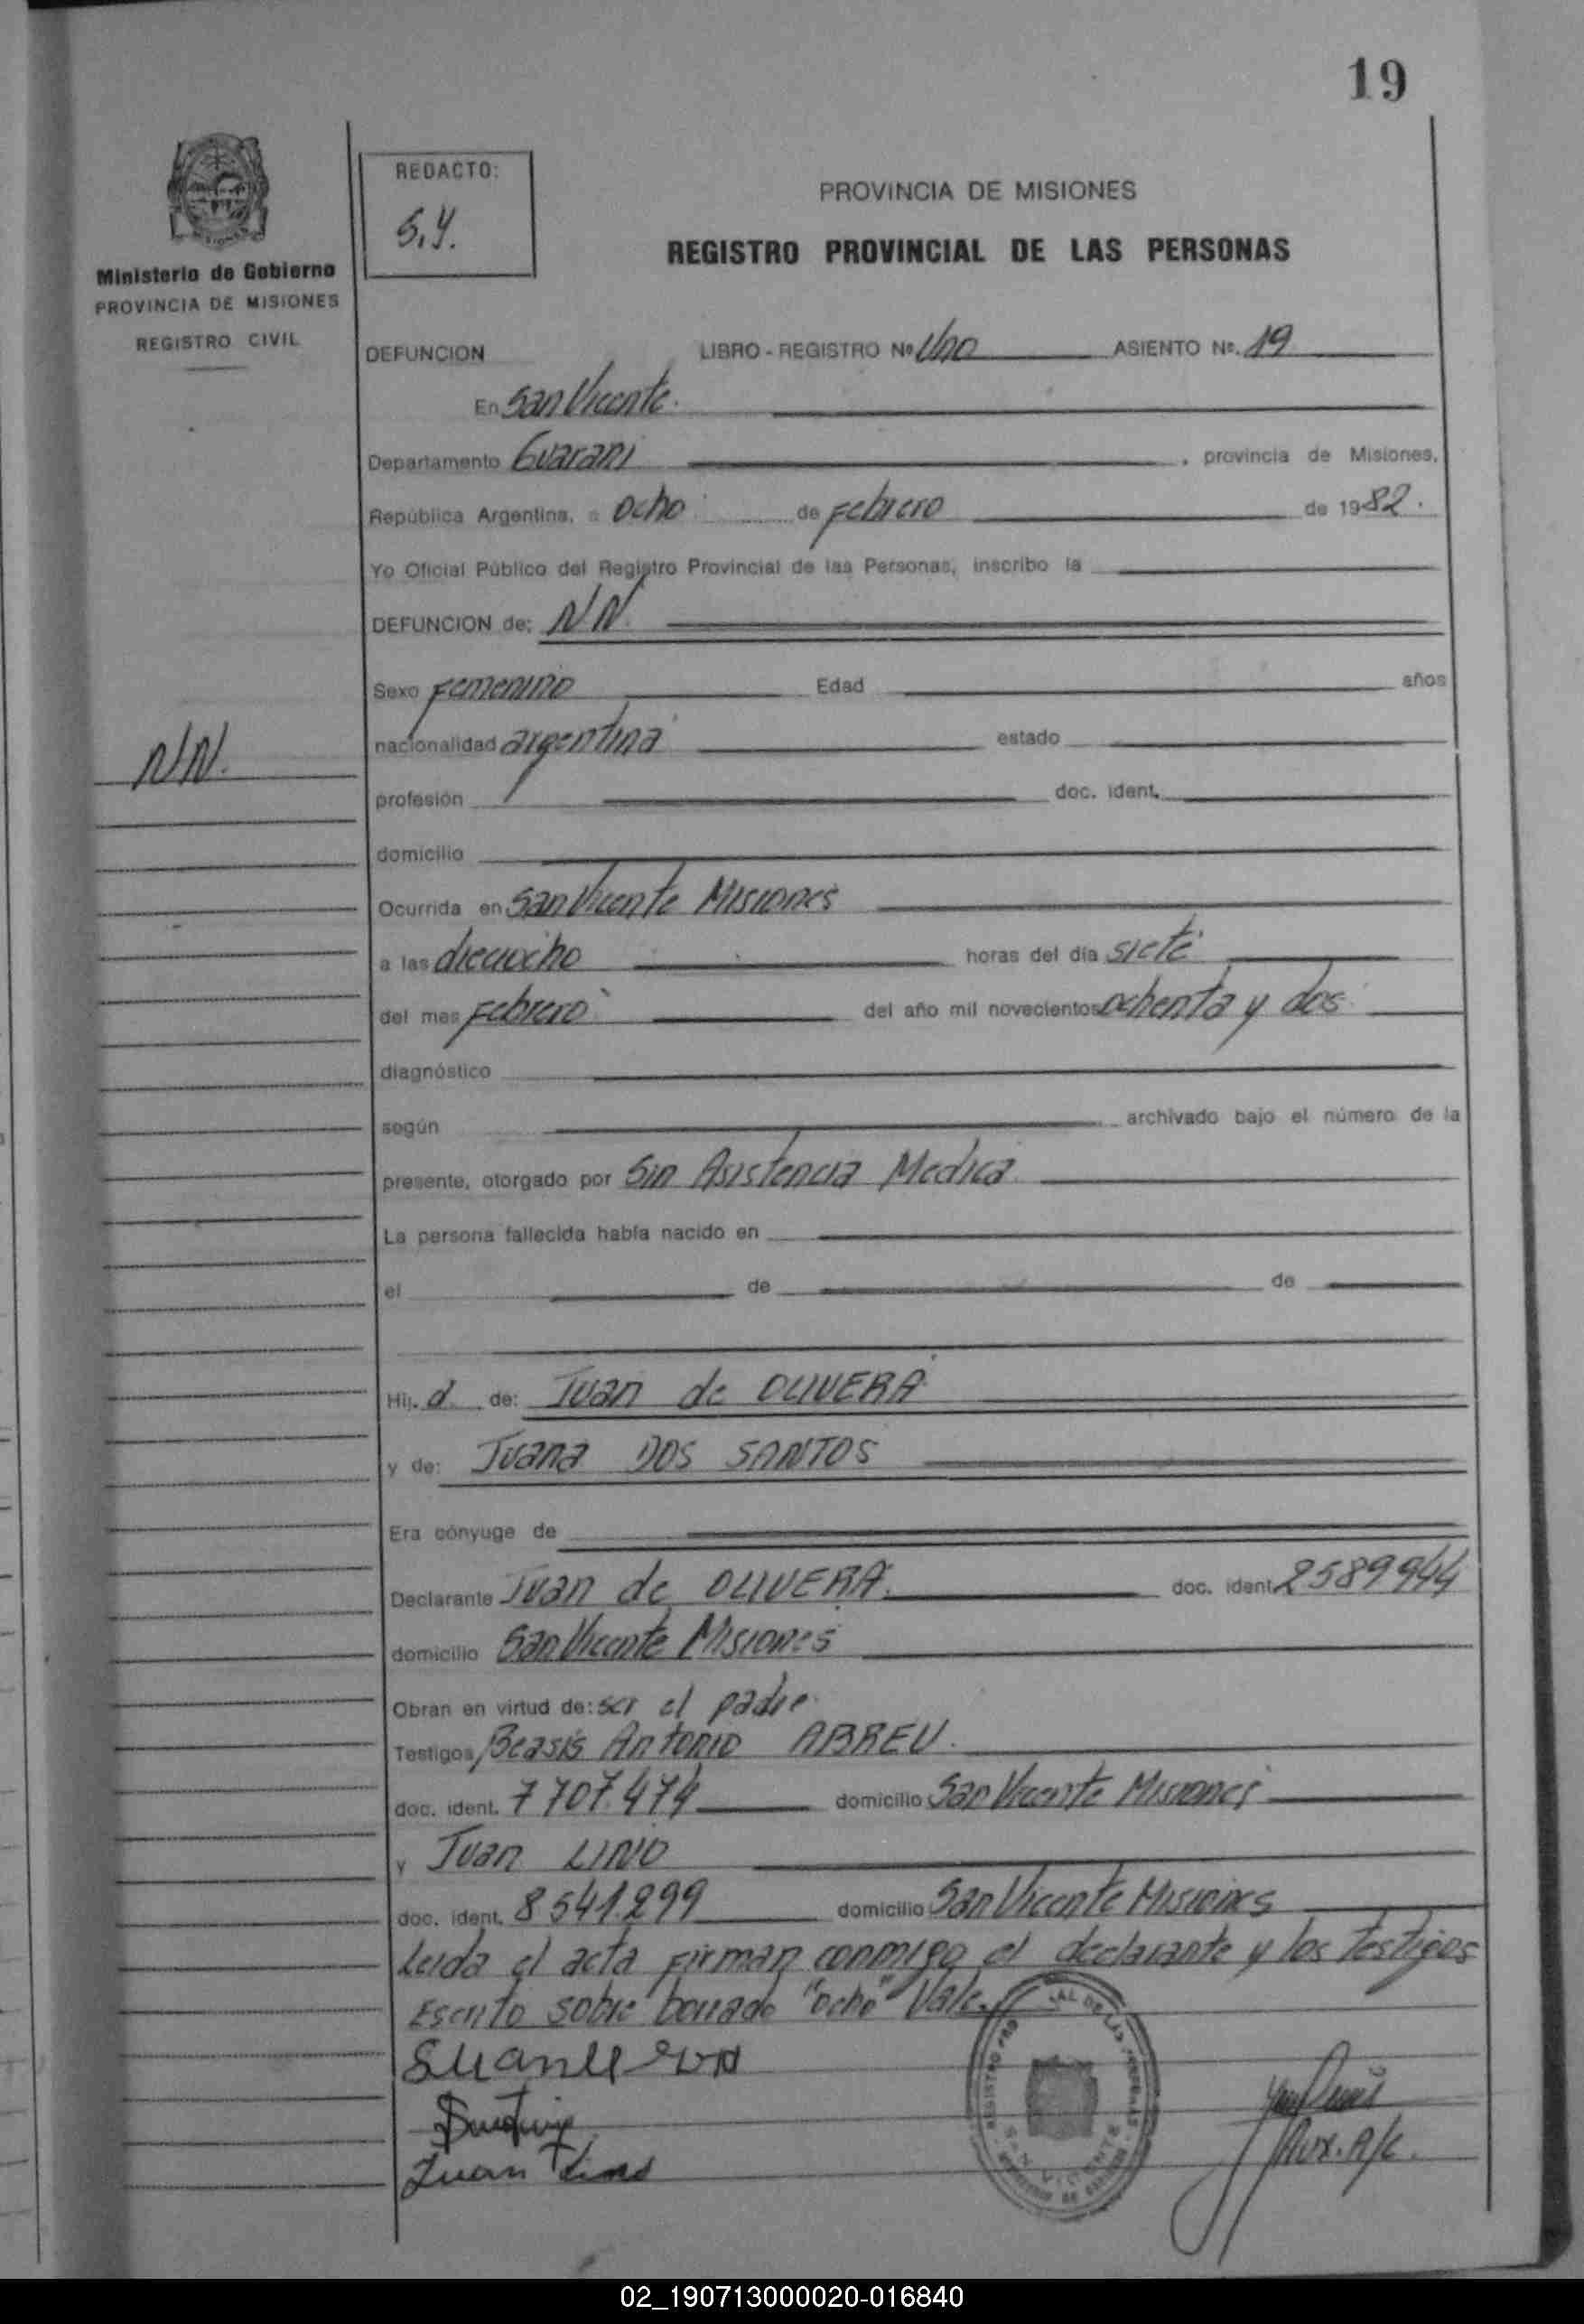 19
REDACTO:
S.Y.
Ministerio de Gobierno
PROVINCIA DE MISIONES
REGISTRO CIVIL
PROVINCIA DE MISIONES
REGISTRO PROVINCIAL DE LAS PERSONAS
DEFUNCION LIBRO - REGISTRO Nº Uno ASIENTO Nº. 19
En San Vicente.
Departamento Guarani , provincia de Misiones,
República Argentina, a ocho de Febrero de 1982.
Yo Oficial Público del Registro Provincial de las Personas, inscribo la
DEFUNCION de: NN.
Sexo Femenino Edad años
nacionalidad argentina estado
NN.
profesión doc. ident.
domicilio
Ocurrida en San Vicente Misiones
a las dieciocho horas del día siete
del mes Febrero del año mil novecientos ochenta y dos
diagnóstico
según archivado bajo el número de la
presente, otorgado por Sin Asistencia Medica
La persona fallecida había nacido en
el de de
Hij. a de: Juan de OLIVERA
y de: Juana DOS SANTOS
Era cónyuge de
Declarante Juan de OLIVERA. doc. ident. 2589944
domicilio San Vicente Misiones
Obran en virtud de: ser el padre.
Testigos Beasis Antonio ABREU.
doc. ident. 7707.474 domicilio San Vicente Misiones
y Juan LINO
doc. ident. 8541.299 domicilio San Vicente Misiones
Leida el acta firman conmigo el declarante y los testigos
Escrito sobre borrado "ocho" Vale.
Juan Lino
Aux. A/C.
02_190713000020-016840